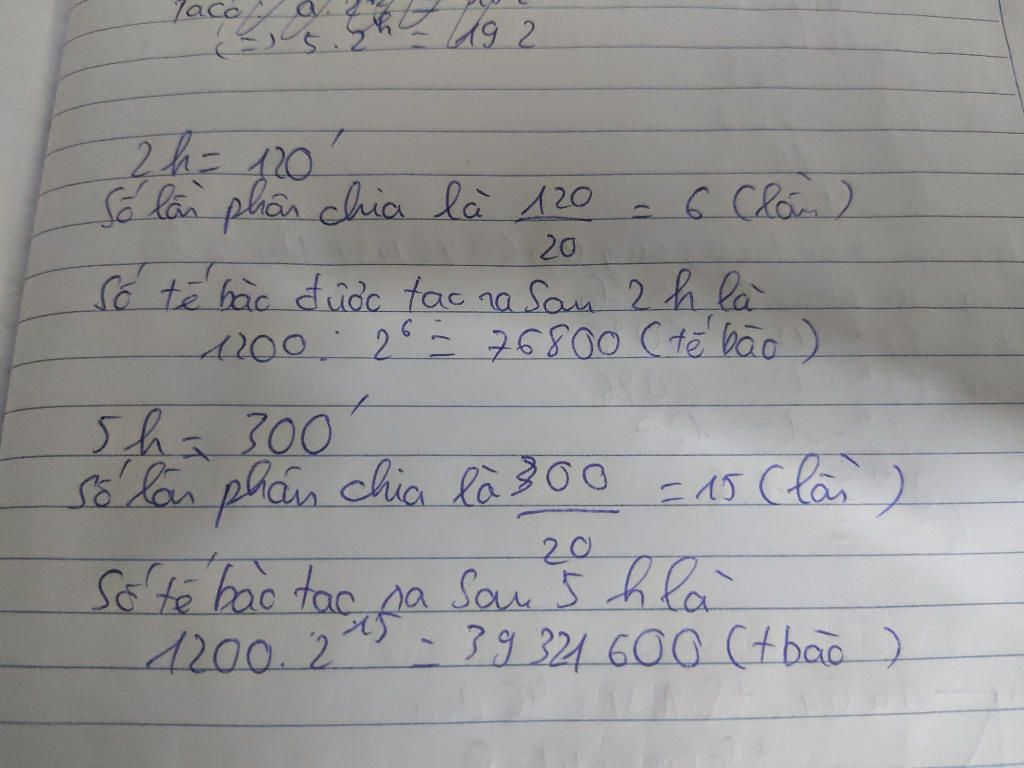 Ta có: a.
(=) 5 . 2ⁿ = 192
2h = 120'
Số lần phân chia là 120/20 = 6 (lần)
Số tế bào được tạc ra sau 2 h là
1200 . 2⁶ = 76800 (tế bão)
5h = 300'
Số lần phân chia là 300/20 = 15 (lần)
Số tế bào tạc ra sau 5 h là
1200 . 2¹⁵ = 39 321 600 (tbão)